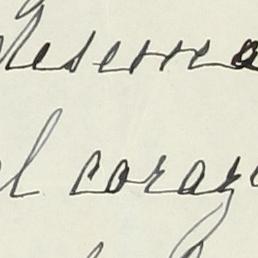 Reserva
el coraz